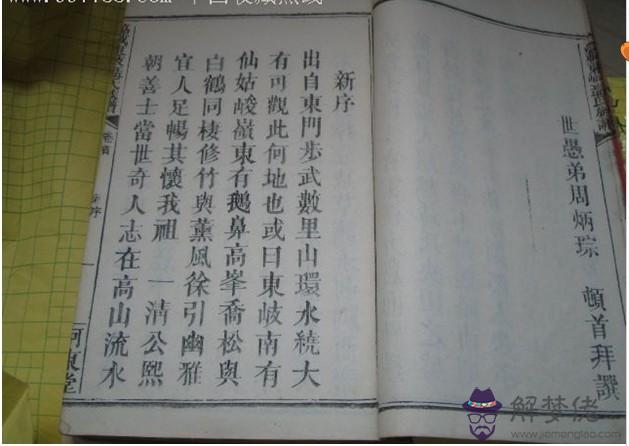 世愚弟周炳琮
頓首拜譔
新序
出自東門步武數里山環水繞大
有可觀此何地也或曰東岐南有
仙姑崚嶺東有鵝鼻高峯喬松與
白鶴同棲修竹與薰風徐引幽雅
宜人足暢其懷我祖
一清公熙
朝善士當世奇人志在高山流水
卷首
序
河東堂
解梦佬
www.jiemenglao.com